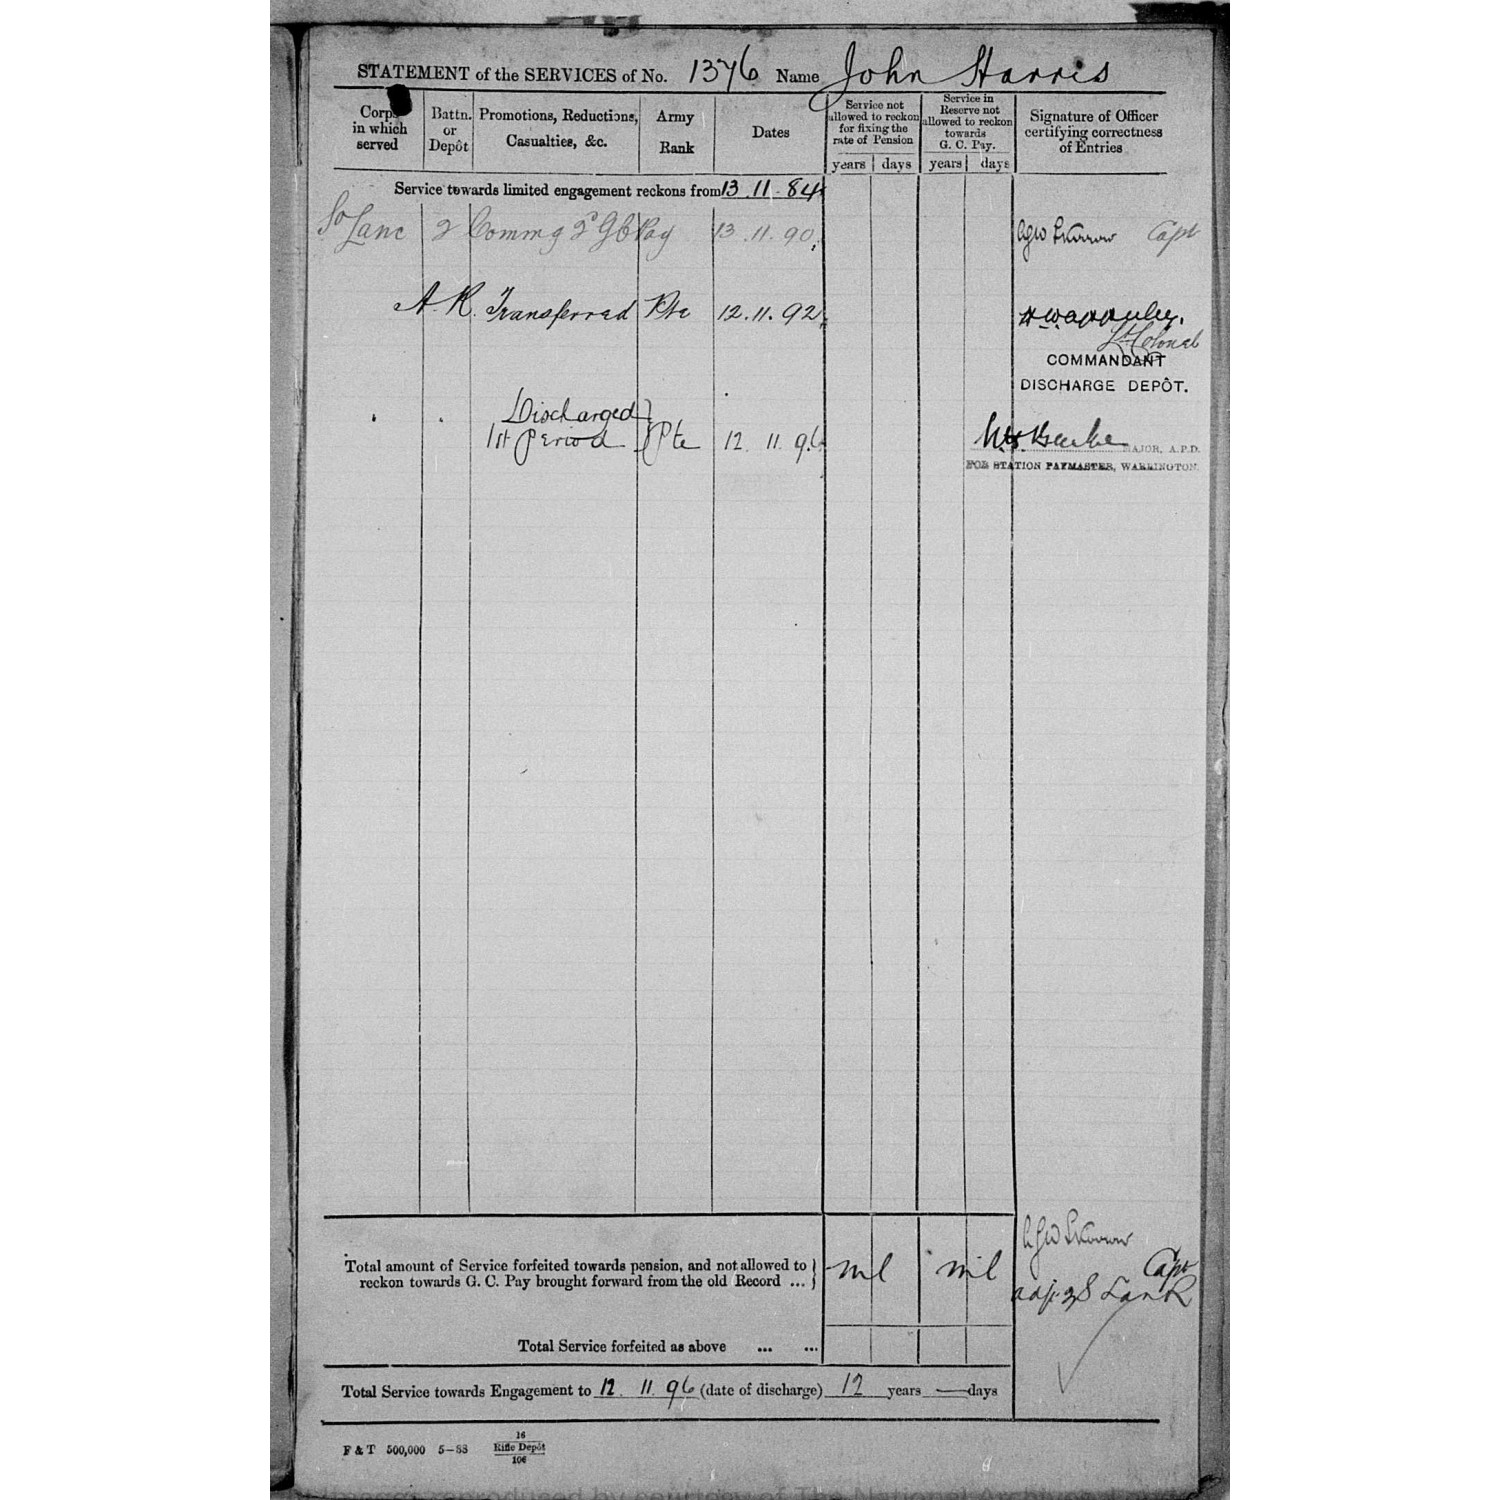 STATEMENT of the SERVICES of No. 1376 Name John Harris
Corps in which served
Battn. or Depôt
Promotions, Reductions, Casualties, &c.
Army Rank
Dates
Service not allowed to reckon for fixing the rate of Pension
years days
Service in Reserve not allowed to reckon towards G. C. Pay.
years days
Signature of Officer certifying correctness of Entries
Service towards limited engagement reckons from 13.11.84
So Lanc 2 Commg 2d GC Pay 13.11.90 Capt
A.R. Transferred Pte 12.11.92
Lt Colonel
COMMANDANT
DISCHARGE DEPÔT.
Discharged
1st Period } Pte 12.11.96
MAJOR, A.P.D.
FOR STATION PAYMASTER, WARRINGTON.
Total amount of Service forfeited towards pension, and not allowed to
reckon towards G. C. Pay brought forward from the old Record ... } nil nil
Capt
adjt 2 S Lan R
Total Service forfeited as above ... ...
Total Service towards Engagement to 12.11.96 (date of discharge) 12 years — days
F & T 500,000 5–88 16 Rifle Depôt 106